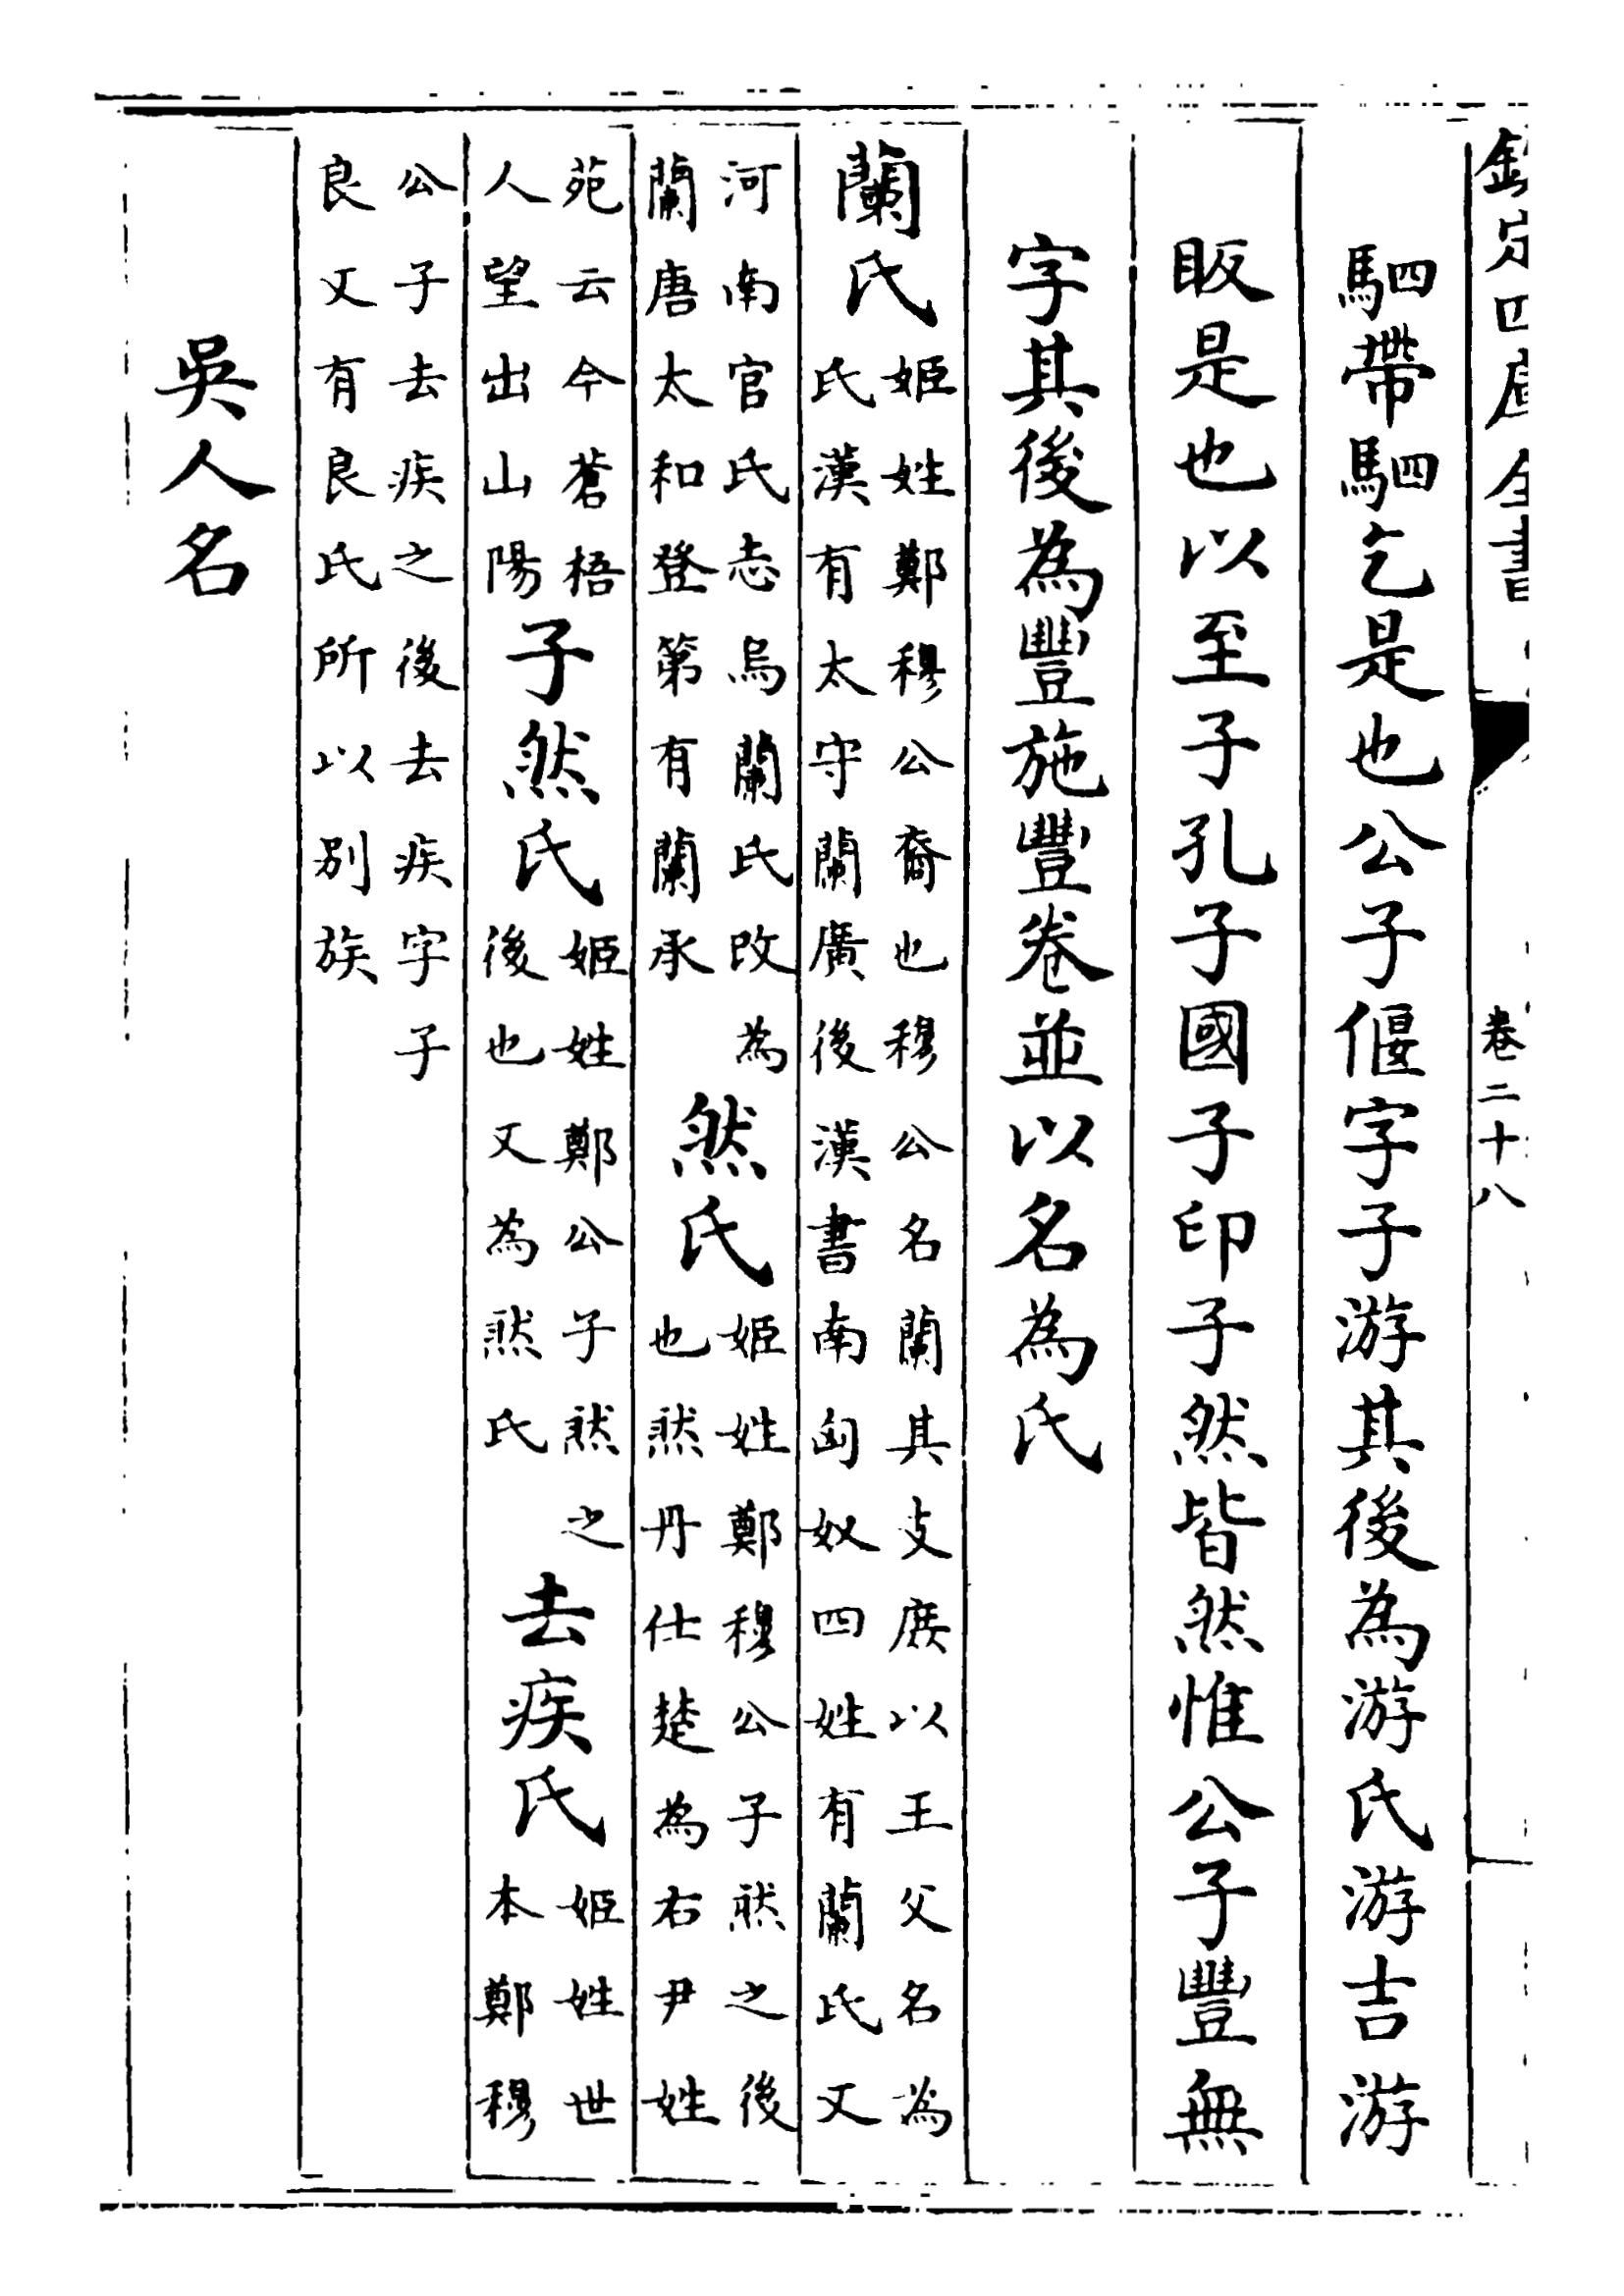 欽定四庫全書
卷二十八
駟帶駟乞是也公子偃字子游其後為游氏游吉游
眅是也以至子孔子國子印子然皆然惟公子豐無
字其後為豐施豐卷並以名為氏
蘭氏
姬姓鄭穆公裔也穆公名蘭其支庶以王父名為
氏漢有太守蘭廣後漢書南匈奴四姓有蘭氏又
河南官氏志烏蘭氏改為
蘭唐太和登第有蘭承
然氏
姬姓鄭穆公子然之後
也然丹仕楚為右尹姓
苑云今蒼梧
人望出山陽
子然氏
姬姓鄭公子然之
後也又為然氏
去疾氏
姬姓世
本鄭穆
公子去疾之後去疾字子
良又有良氏所以別族
吳人名